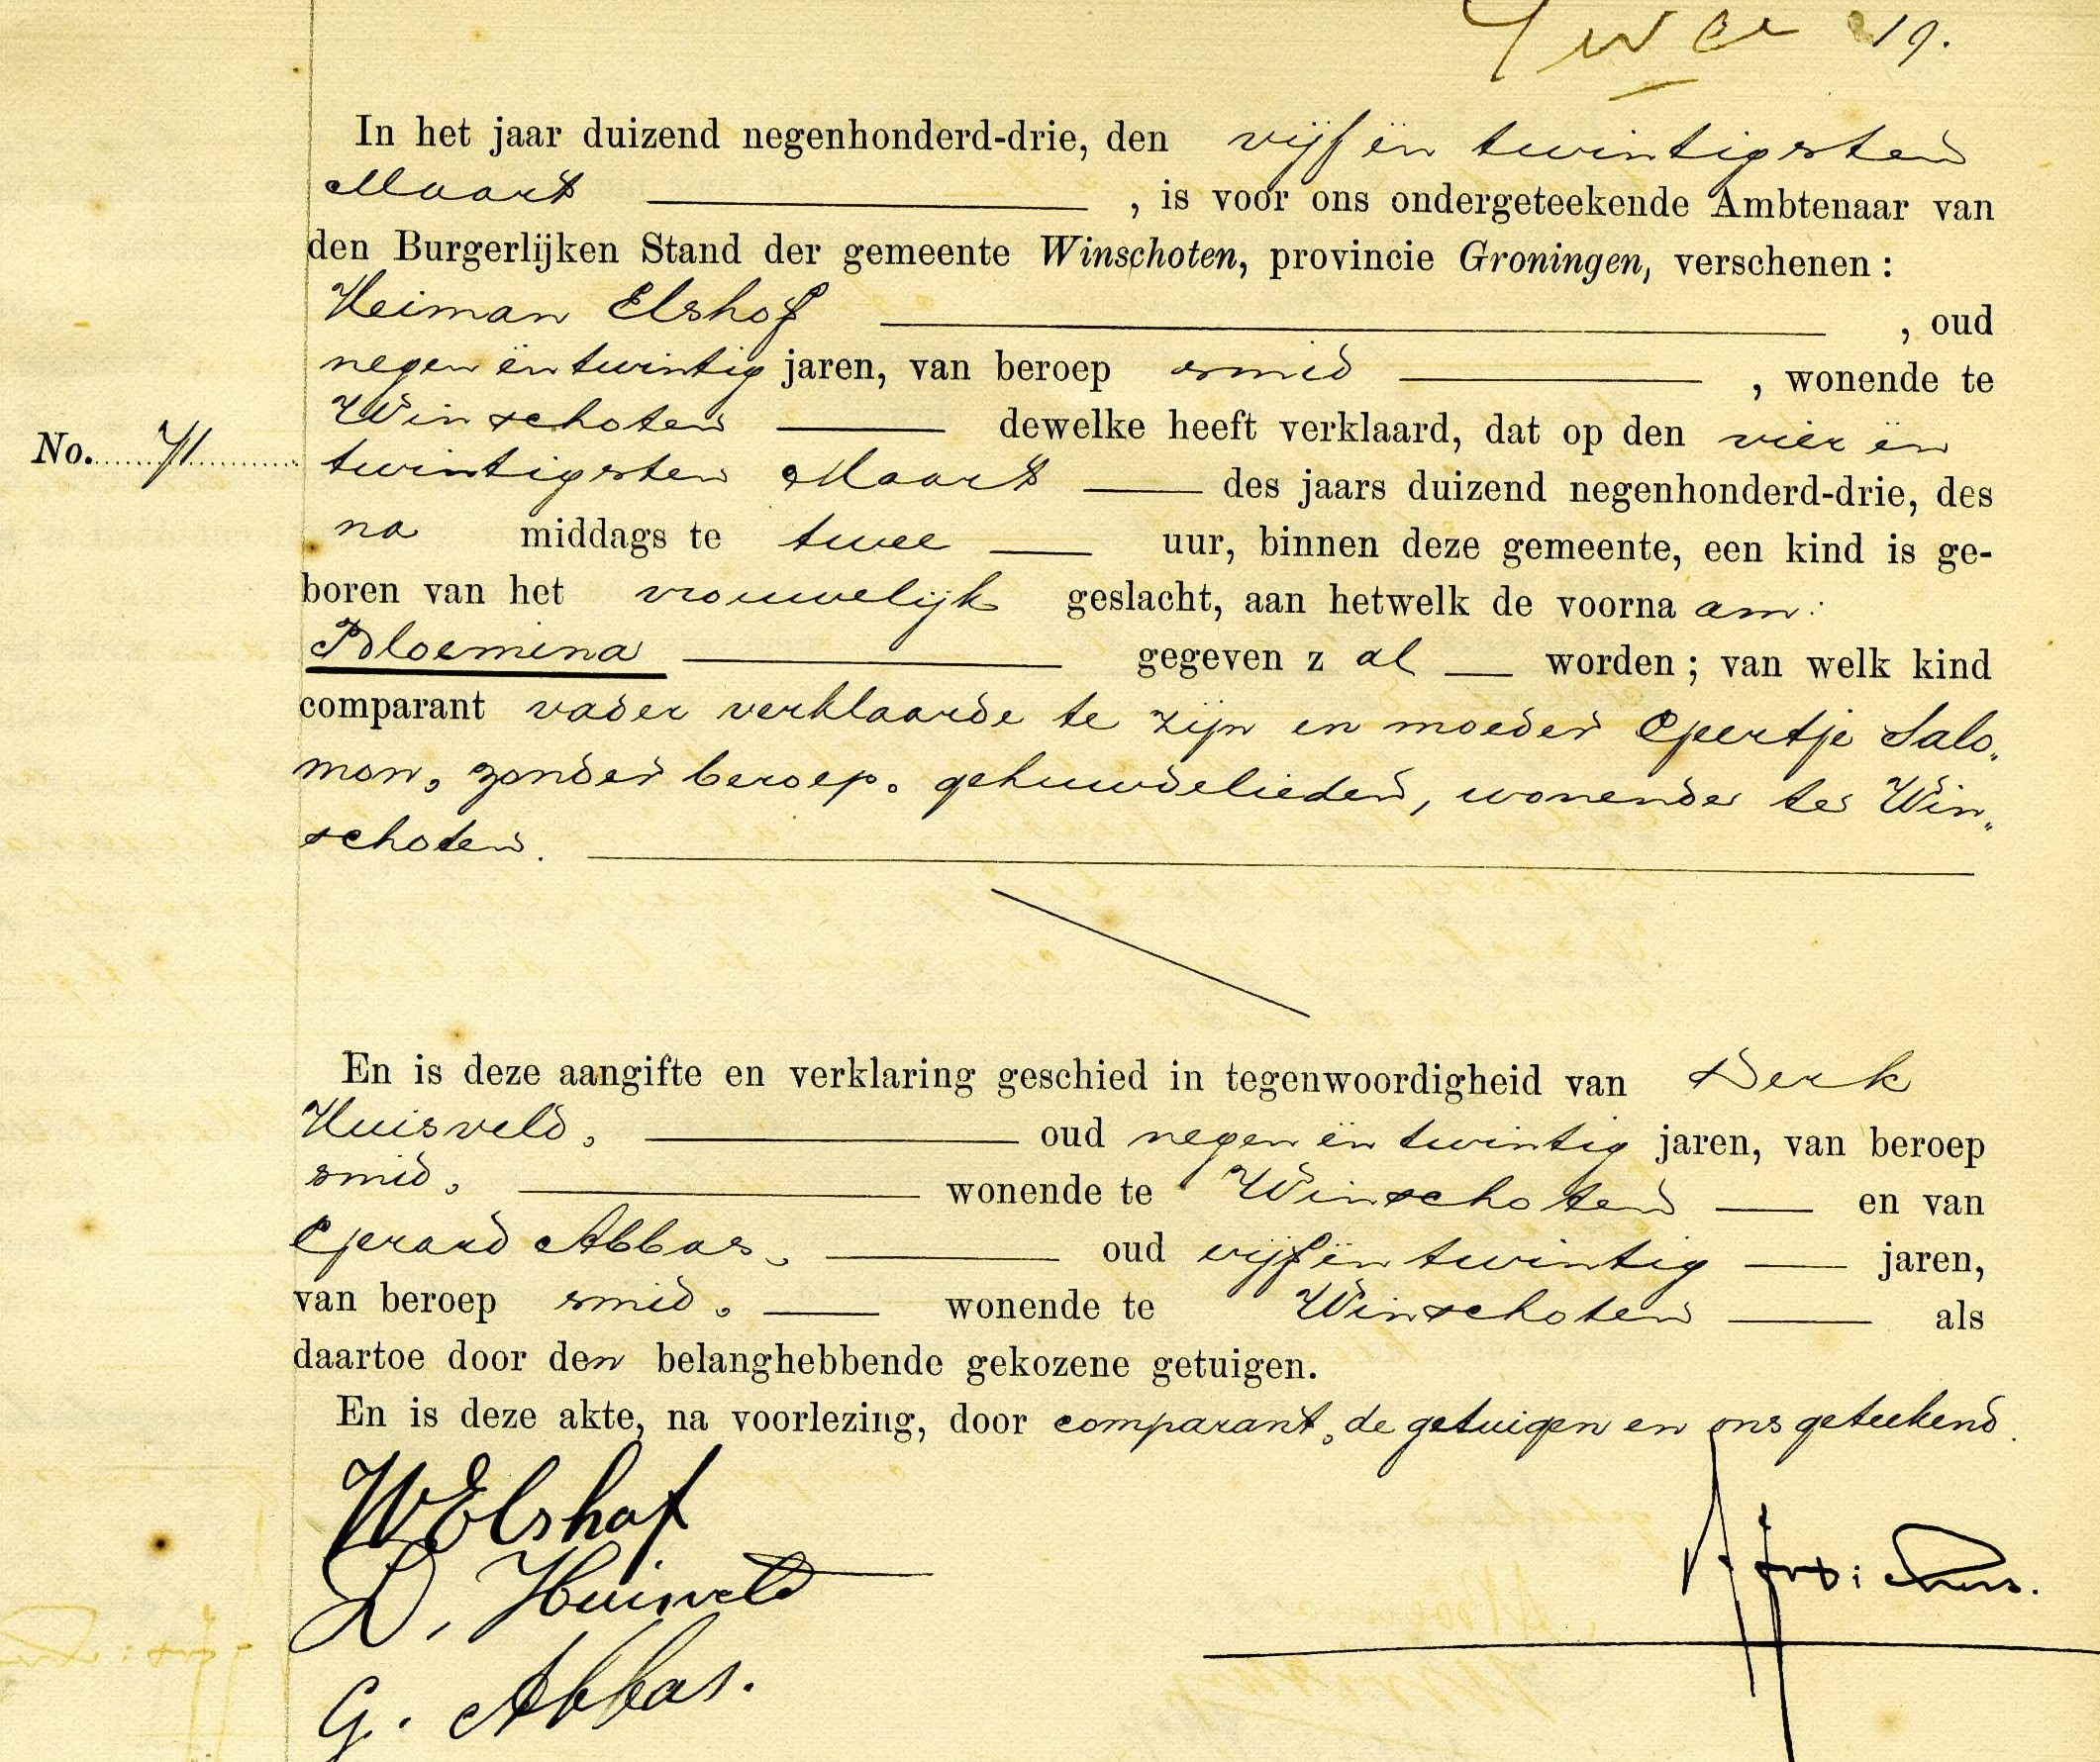 19.
In het jaar duizend negenhonderd-drie, den vijf en twintigsten
Maart , is voor ons ondergeteekende Ambtenaar van
den Burgerlijken Stand der gemeente Winschoten, provincie Groningen, verschenen :
Heiman Elshof , oud
negen en twintig jaren, van beroep smid , wonende te
Winschoten dewelke heeft verklaard, dat op den vier en
No. 71 twintigsten Maart des jaars duizend negenhonderd-drie, des
na middags te twee uur, binnen deze gemeente, een kind is ge-
boren van het vrouwelijk geslacht, aan hetwelk de voorna am:
Bloemina gegeven z al worden ; van welk kind
comparant vader verklaarde te zijn en moeder Geertje Salo„
mon, zonder beroep. gehuwdelieden, wonende te Win„
schoten.
En is deze aangifte en verklaring geschied in tegenwoordigheid van Derk
Huisveld, oud negen en twintig jaren, van beroep
smid, wonende te Winschoten en van
Gerard Abbas, oud vijf en twintig jaren,
van beroep smid, wonende te Winschoten als
daartoe door den belanghebbende gekozene getuigen.
En is deze akte, na voorlezing, door comparant, de getuigen en ons geteekend.
HElshof
D. Huisveld
G. Abbas.